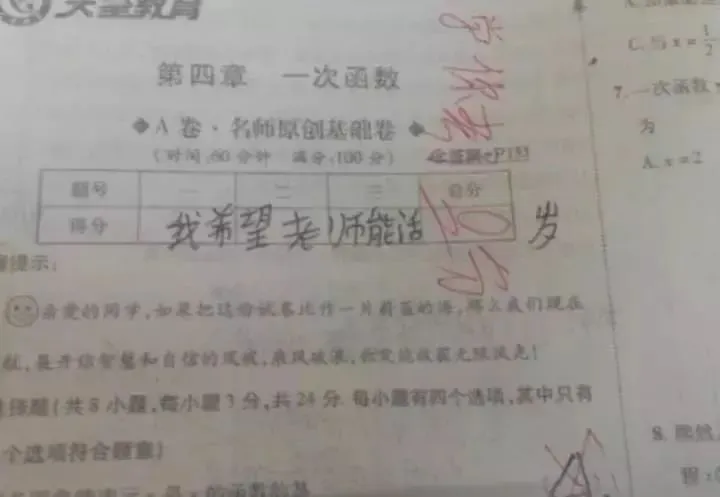 天星教育
第四章 一次函数
◆A 卷·名师原创基础卷◆
(时间:60分钟 满分:100分) 答案:P153
题号 一 二 三 总分
得分
我希望老师能活 岁
0分
提示:
亲爱的同学,如果把这份试卷比作一片蔚蓝的海,那么我们现在
航,展开你智慧和自信的风帆,乘风破浪,你定能收获无限风光!
择题(共8小题,每小题3分,共24分.每小题有四个选项,其中只有
个选项符合题意)
C.与x=1/2
7.一次函数
为
A.x=2
8.
程